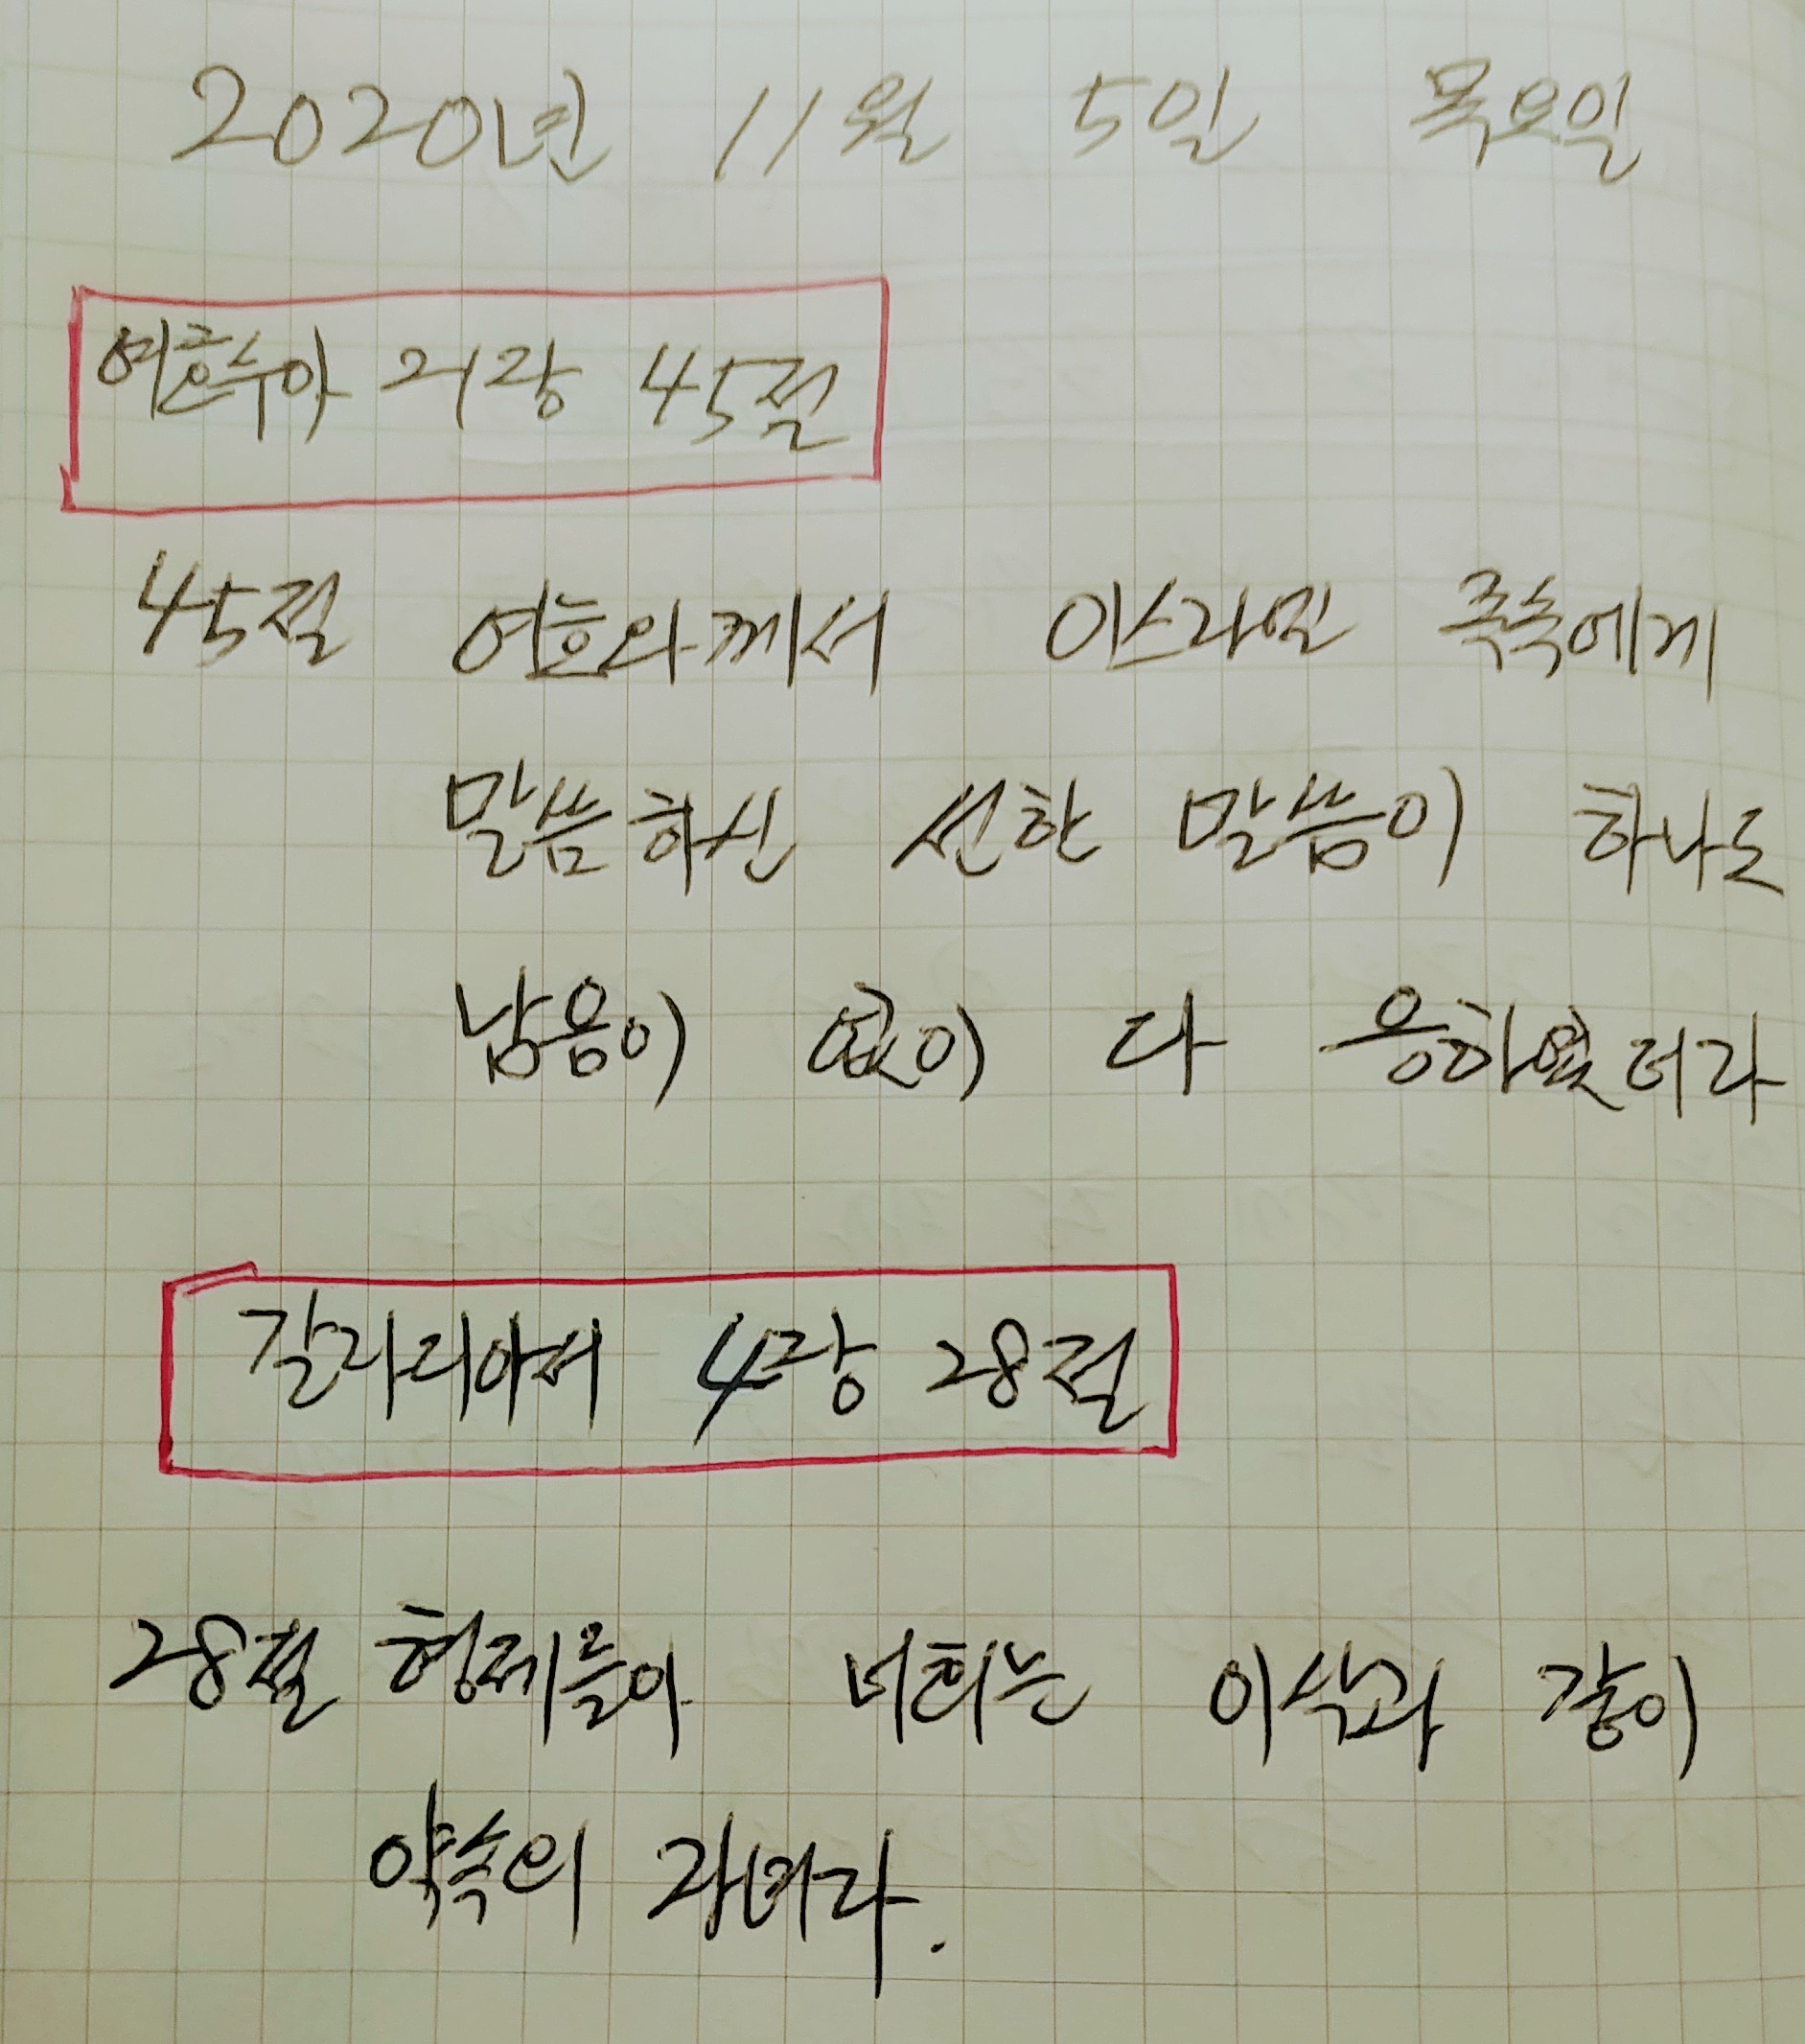 2020년 11월 5일 목요일
여호수아 21장 45절
45절 여호와께서 이스라엘 족속에게
말씀하신 선한 말씀이 하나도
남음이 없이 다 응하였더라
갈라디아서 4장 28절
28절 형제들아 너희는 이삭과 같이
약속의 자녀라.